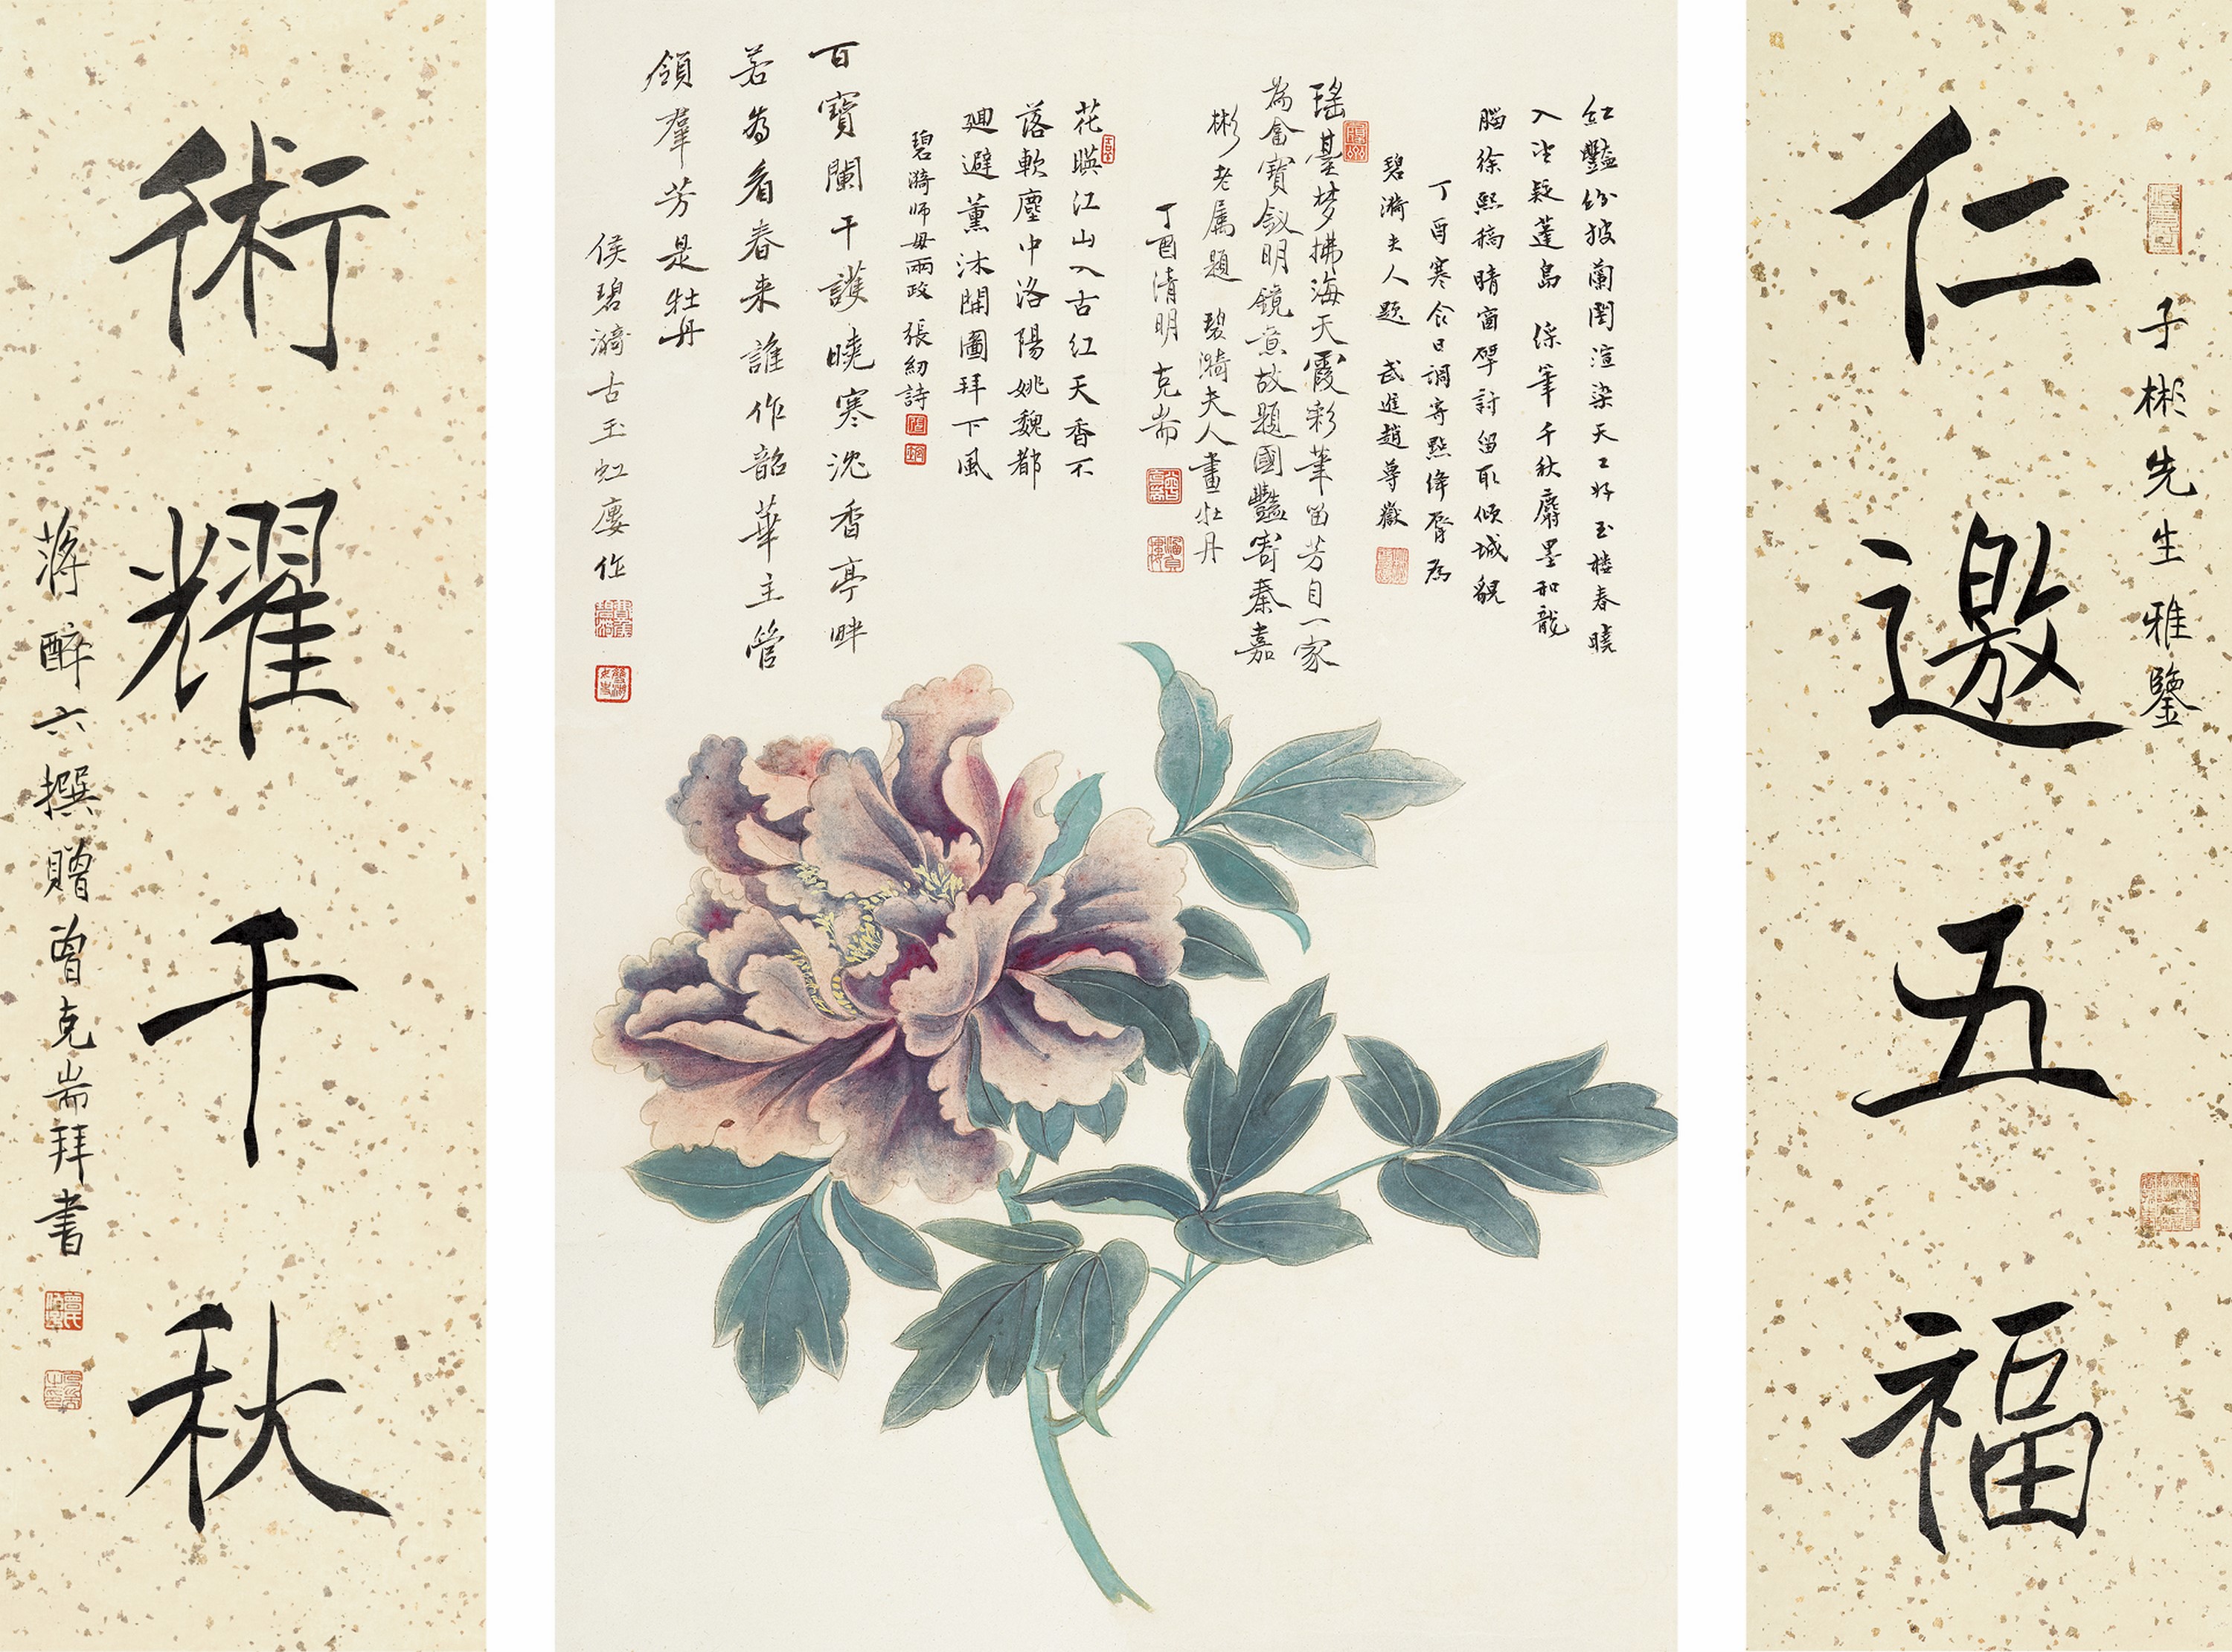 仁邀五福
子彬先生雅鑒
紅豔紛披蘭閨渲染天工好玉樓春曉
入坐疑蓬島 綵筆千秋麝墨和龍
腦徐熙稿晴窗掔討留取傾城貌
丁酉寒食日調寄點絳脣為
碧漪夫人題 武進趙尊嶽
瑤臺梦拂海天霞彩筆笛芳自一家
為畣寶釵明鏡意故題國豔寄秦嘉
彬老属題 碧漪夫人畫牡丹
丁酉清明 克耑
花暎江山入古紅天香不
落軟塵中洛陽姚魏都
迴避薰沐開圖拜下風
碧漪師母兩政 張紉詩
百寶闌干護曉寒沈香亭畔
若為看春来誰作韶華主管
領羣芳是牡丹
侯碧漪古玉虹廔作
術耀千秋
蔣醉六撰贈曾克耑拜書